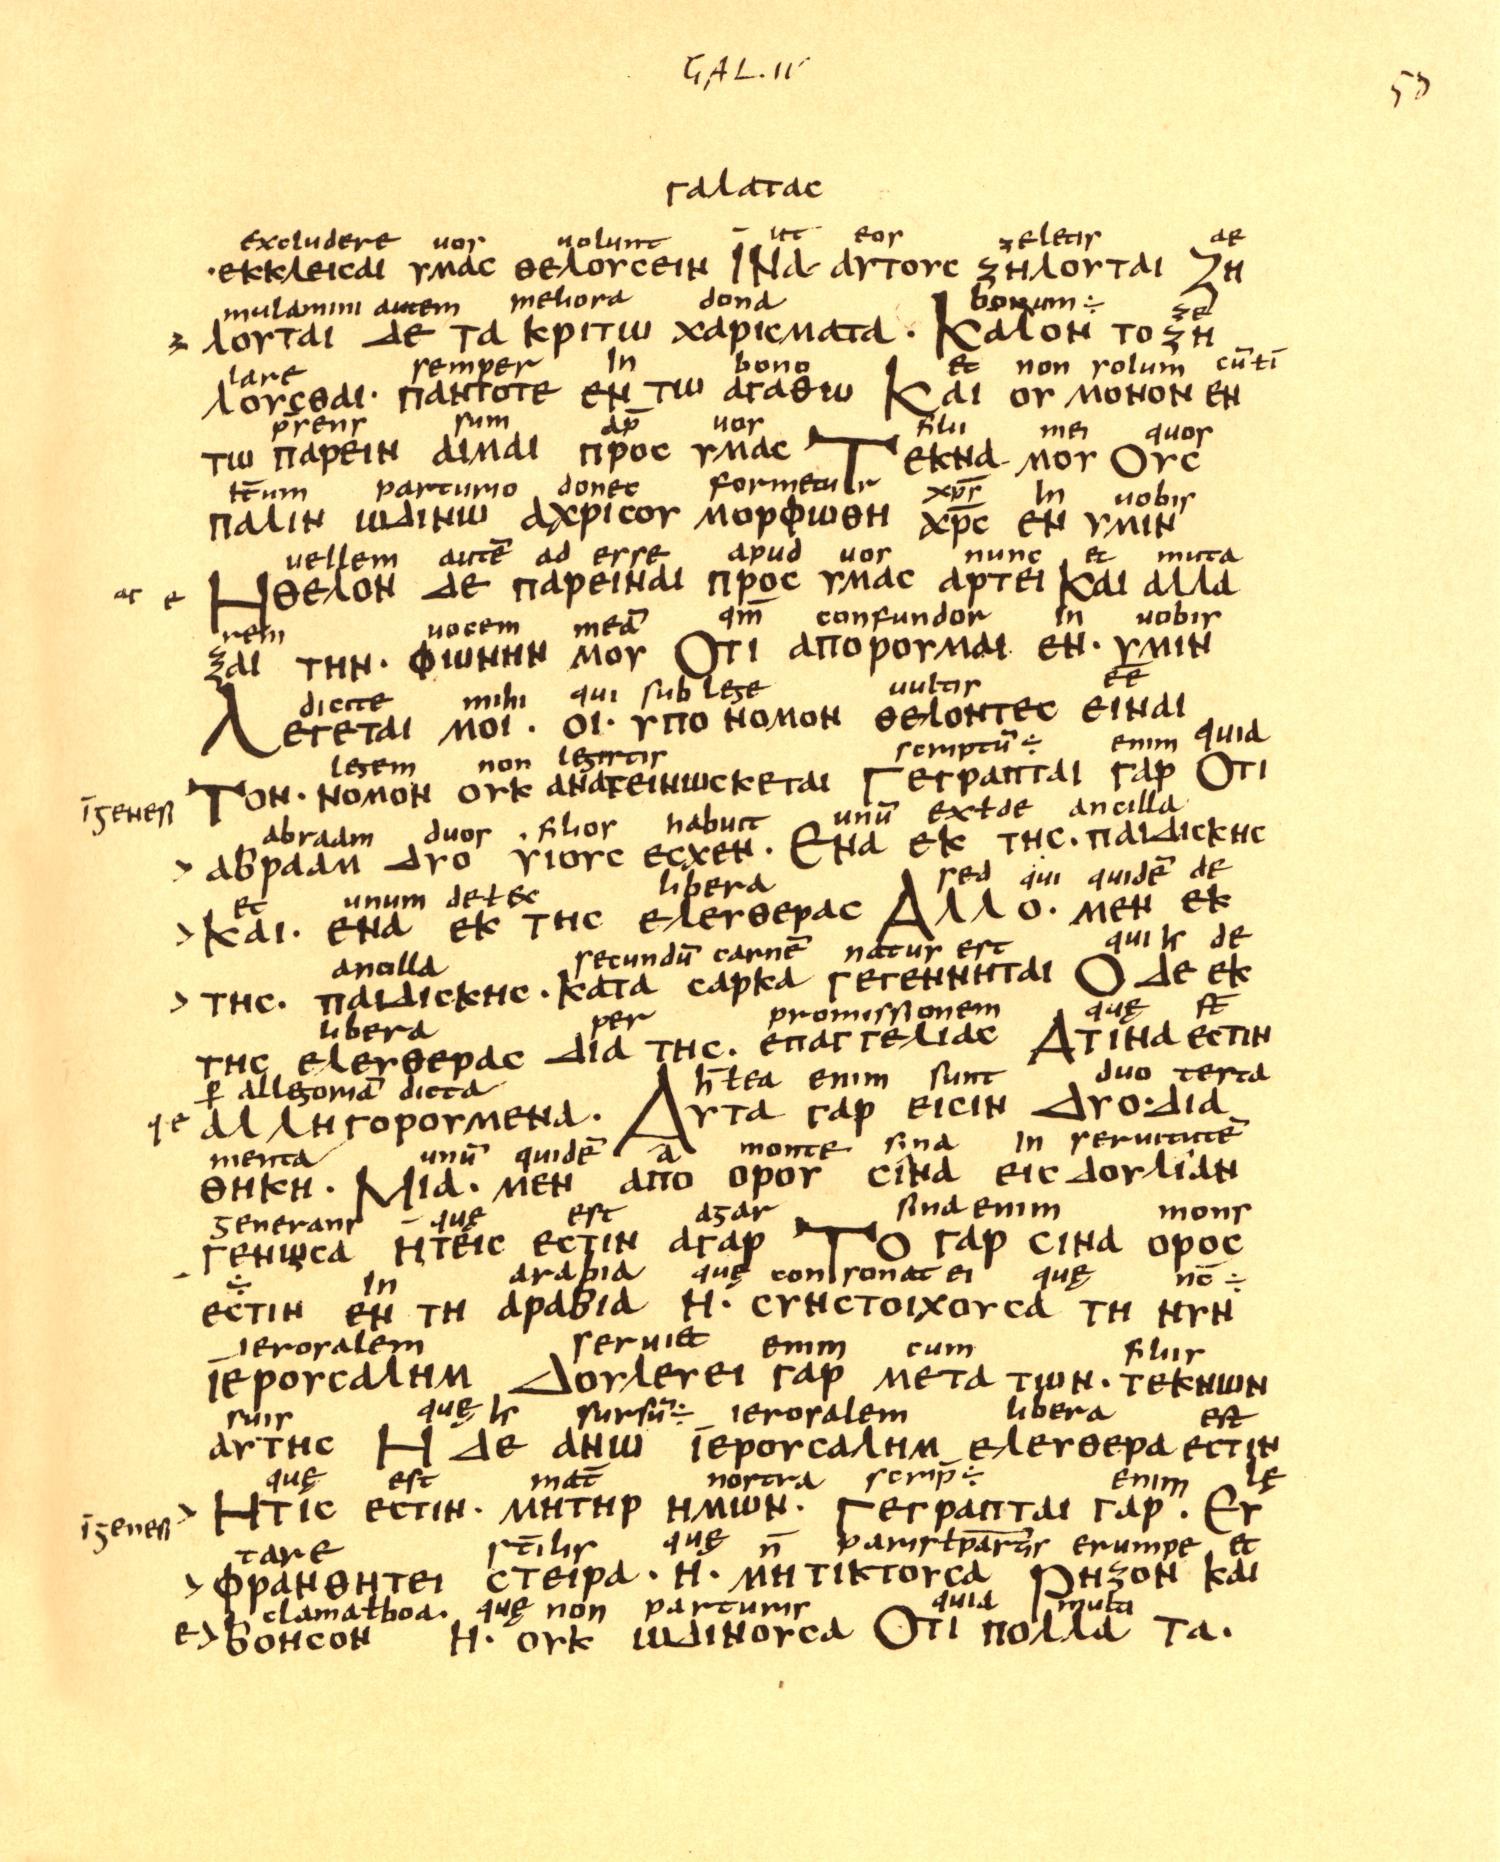 GAL. IV
γαλατας
excludere uos uolunt ut eos zeletis ae
·εκκλεισαι υμας θελουσειν ΙΝα αυτους ζηλουται Ζη
mulamini autem meliora dona bonum ÷ ze
λουται δε τα κριτω χαρισματα· Καλον το ζη
lare semper In bono et non solum cū tī
λουσθαι· παντοτε εν τω αγαθω Και ου μονον εν
p̄rens sum ap̄ uos filii mei quos
τω παρειν αιμαι προς υμας Τεκνα μου Ους
it̄um parturio donec formetur xp̄s In uobis
παλιν ωδινω αχρισου μορφωθη χρ̄ς εν υμιν
uellem autē ad esse apud uos nunc et muta
Ηθελον δε παρειναι προς υμας αρτει Και αλλα
rem uocem meā qm̄ confundor In uobis
ξαι την· φωνην μου Οτι απορουμαι εν· υμιν
dicite mihi qui sub lege uultis ēē
Λεγεται μοι· οι· υπο νομον θελοντες ειναι
legem non legistis scriptū ÷ enim quia
Τον· νομον ουκ αναγεινωσκεται Γεγραπται γαρ Οτι
abraam duos filios habuit unū ex ł de ancilla
αβρααμ δυο υιους εσχεν· Ενα εκ της· παιδισκης
et unum de ł ec libera sed qui quidē de
Και· ενα εκ της ελευθερας Αλλ ο· μεν εκ
ancilla secundū carnē natus est qui de
της· παιδισκης· κατα σαρκα γεγεννηται Ο δε εκ
libera per promissionem quę s̄t
της ελευθερας δια της· επαγγελιας Ατινα εστιν
p allegoriā dicta h̄ ł ea enim sunt duo testa
αλληγορουμενα· Αυτα γαρ εισιν Δυο· δια
menta unū quidē a monte sina In seruitutē
θηκη· Μια· μεν απο ορου σινα εις δουλιαν
generans quę est agar sina enim mons
γενωσα Ητεις εστιν αγαρ Το γαρ σινα ορος
÷ In arabia quę consonat ei quę nc̄ ÷
εστιν εν τη αραβια Η· συνστοιχουσα τη νυν
ierosalem seruiet enim cum filiis
ιερουσαλημ Δουλευει γαρ μετα των· τεκνων
suis quę sursū ÷ ierosalem libera est
αυτης Η δε ανω ιερουσαλημ ελευθερα εστιν
quę est mat̄ nostra scrip̄ ÷ enim lę
Ητις εστιν· μητηρ ημων· Γεγραπται γαρ· Ευ
tare st̄ilis quę n̄ erumpe et
φρανθητει στειρα· η· μη τικτουσα Ρηξον και
clama ł boa· quę non parturis quia multa
βοησον η· ουκ ωδινουσα Οτι πολλα τα·